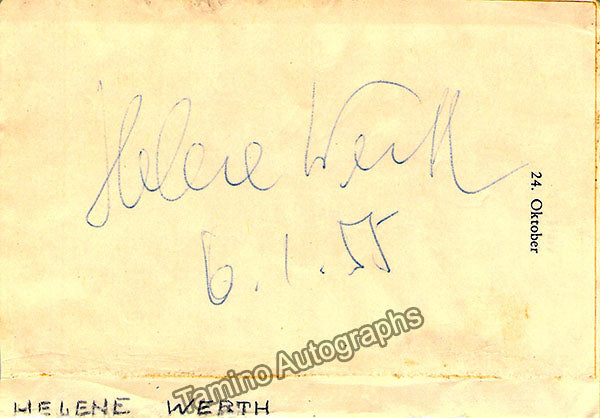 Helene Werth
6.1.55
24. Oktober
Tamino Autographs
HELENE WERTH